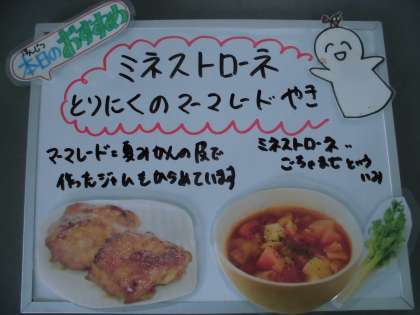 ほんじつ
本日のおすすめ
ミネストローネ
とりにくのマーマレードやき
マーマレード=夏みかんの皮で
作ったジャムもからめています
ミネストローネ
ごちゃまぜという
いみ